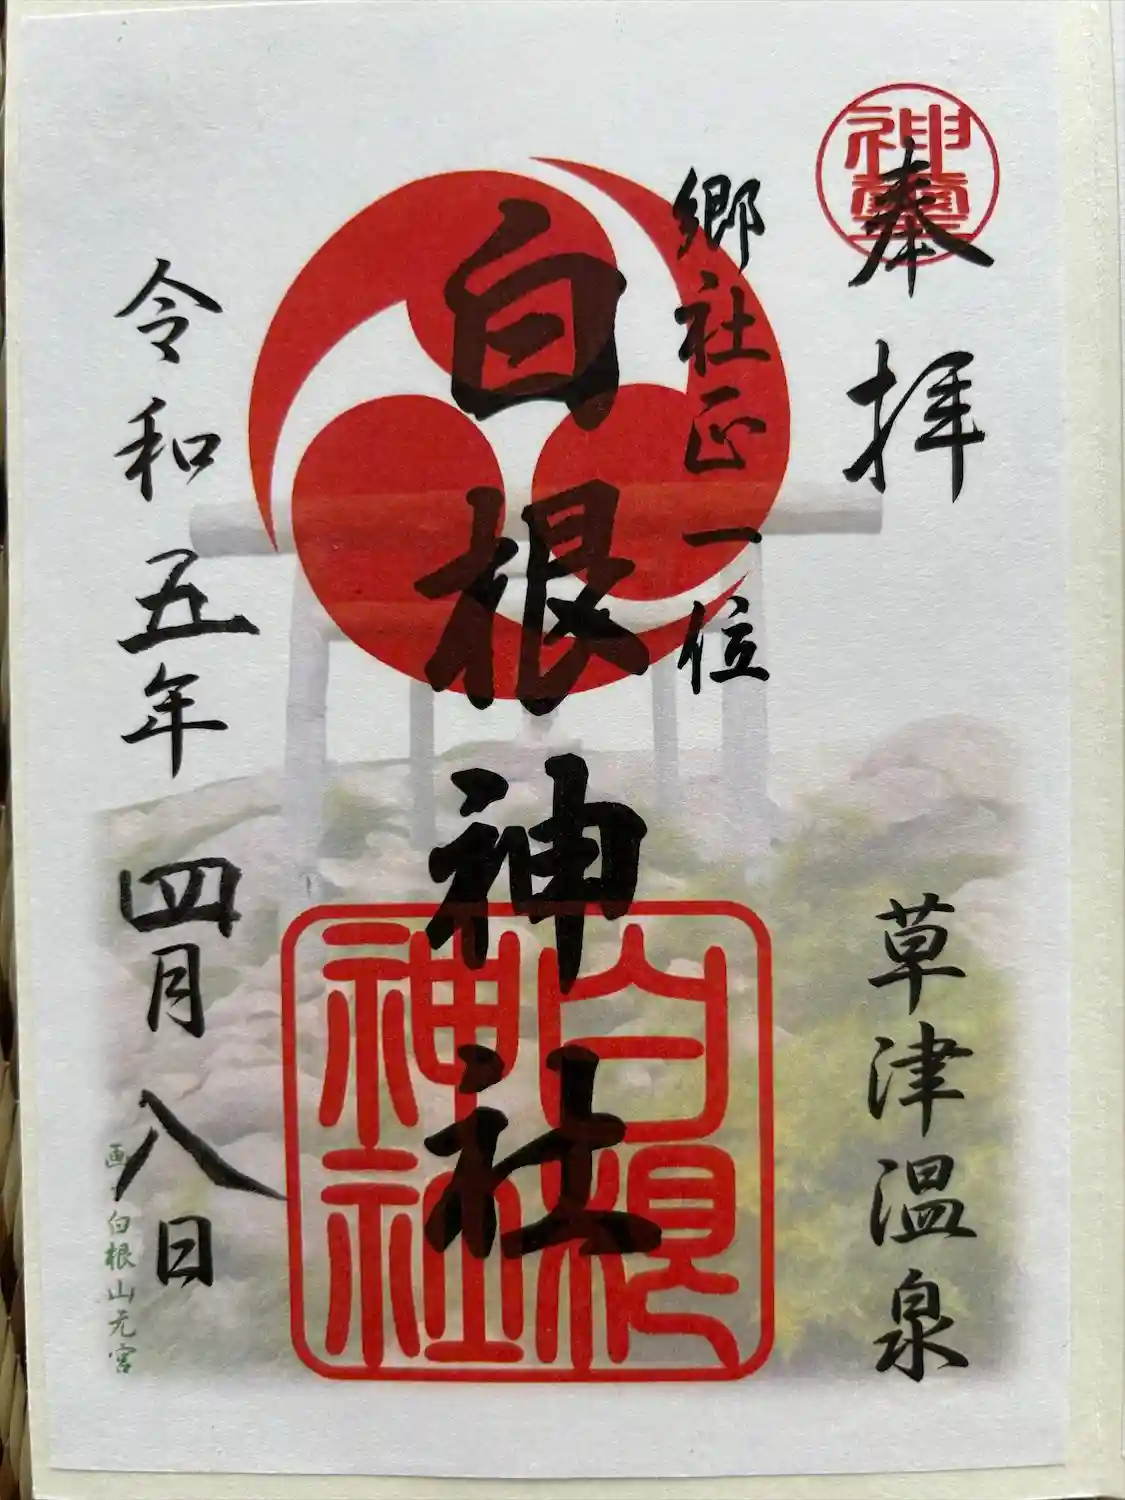 奉拝
草津温泉
郷社正一位
白根神社
白根
神社
令和五年四月八日
画 白根山元宮